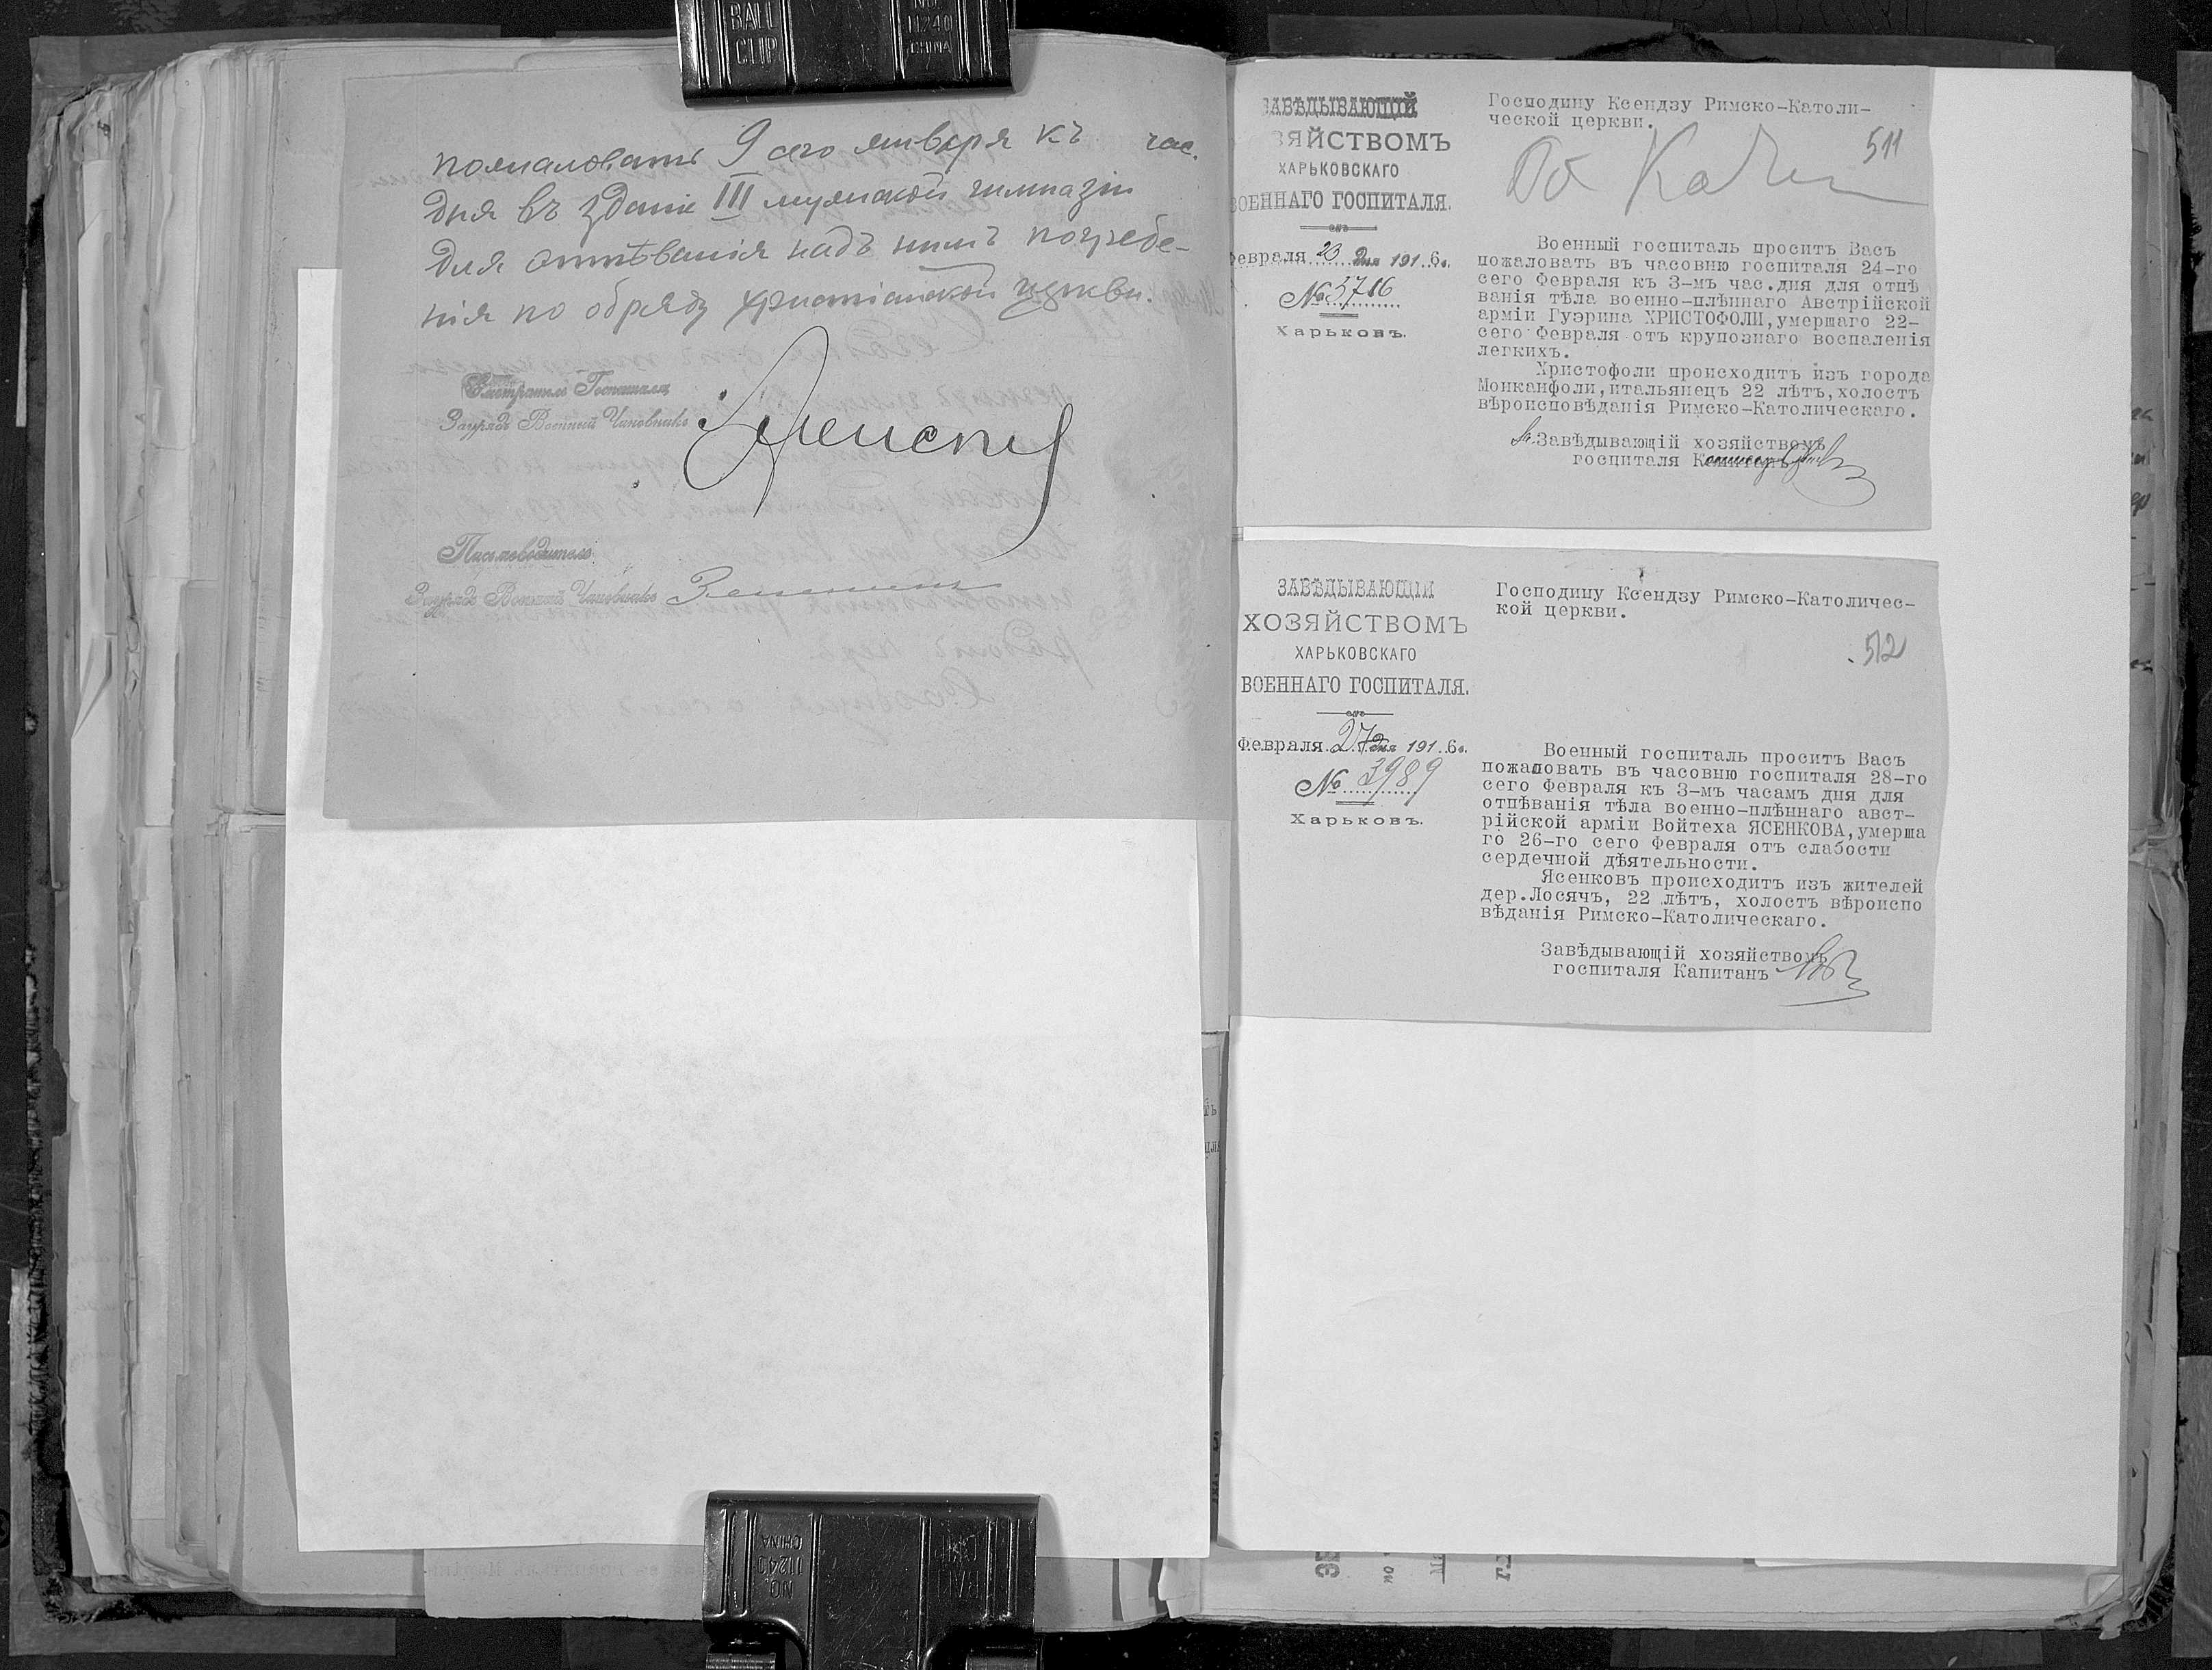 пожаловать 9 сего января къ час.
дня въ зданіе III мужской гимназіи
для отпѣванія надъ нимъ погребе-
нія по обряду христіанской церкви.
Смотритель Госпиталя
Заурядъ Военный Чиновникъ
Письмоводитель
Заурядъ Военный Чиновникъ
ЗАВѢДЫВАЮЩІЙ
ЗЯЙСТВОМЪ
ХАРЬКОВСКАГО
ВОЕННАГО ГОСПИТАЛЯ.
Февраля 23 дня 1916г.
№ 3716
Харьковъ.
Господину Ксендзу Римско-Католи-
ческой церкви.
511
Военный госпиталь проситъ Васъ
пожаловать въ часовню госпиталя 24-го
сего Февраля къ 3-мъ час.дня для отпѣ
ванія тѣла военно-плѣннаго Австрійской
арміи Гуэрина ХРИСТОФОЛИ,умершаго 22-
сего Февраля отъ крупознаго воспаленія
легкихъ.
Христофоли происходитъ изъ города
Монканфоли,итальянецъ 22 лѣтъ,холостъ
вѣроисповѣданія Римско-Католическаго.
Завѣдывающій хозяйствомъ
госпиталя
ЗАВѢДЫВАЮЩІЙ
ХОЗЯЙСТВОМЪ
ХАРЬКОВСКАГО
ВОЕННАГО ГОСПИТАЛЯ.
Февраля 27 дня 1916г.
№ 3989
Харьковъ.
Господину Ксендзу Римско-Католичес-
кой церкви.
512
Военный госпиталь проситъ Васъ
пожаловать въ часовню госпиталя 28-го
сего Февраля къ 3-мъ часамъ дня для
отпѣванія тѣла военно-плѣннаго авст-
рійской арміи Войтеха ЯСЕНКОВА,умерша
го 26-го сего Февраля отъ слабости
сердечной дѣятельности.
Ясенковъ происходитъ изъ жителей
дер.Лосячъ, 22 лѣтъ, холостъ вѣроиспо
вѣданія Римско-Католическаго.
Завѣдывающій хозяйствомъ
госпиталя Капитанъ
BALL
CLIP
NO.
11240
CHINA